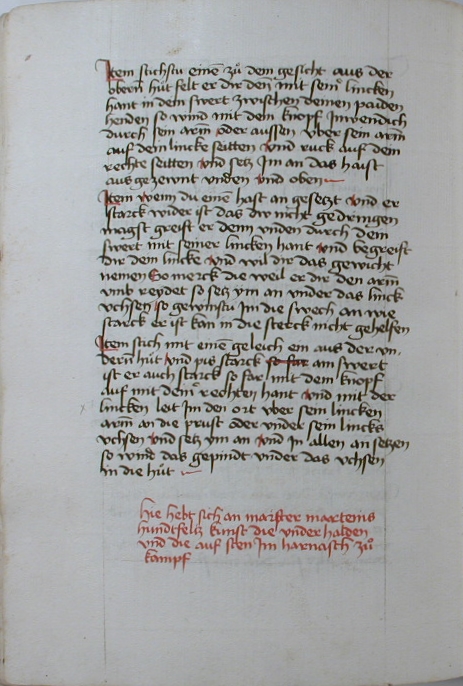 Item stichstu eine zů dem gesicht aus der
obern hůt felt er dir den mit seiner lincken
hant in dem swert zwischen deinen paiden
henden so wind mit dem knopf Inwendich
durch sein arm oder aussen vber sein arm
auf dein lincke seitten vnd ruck auf dein
rechte seitten vnd setz Im an das haist
aus gezewnt vnden vnd oben
Item wenn du eine hast an gesetzt vnd er
starck wider ist das dw nicht gedringen
magst greift er denn vnden durch dein
swert mit seiner lincken hant vnd begreift
dir dein lincke vnd wil dir das gewicht
nemen So merck die weil er dir den arm
vmb reydet so setz ym an vnder das linck
vchsen so gewinstu Im die swech an wie
starck er ist kan in die sterck nicht gehelfen
Item stich mit eine geleich ein aus der vn
dern hůt vnd pis starck so far am swert
ist er auch starck so far mit dem knopf
auf mit dein rechten hant vnd mit der
lincken leit Im den ort vber sein lincken
arm an die prust oder vnder sein lincks
vchsen vnd setz ym an vnd In allen an setzen
so wind das gepindt vnder das vchsen
in die hůt
hie hebt sich an maister martenis
hundtfeltz kunst die vnder halden
vnd die auf sten Im harnasch zů
kampf